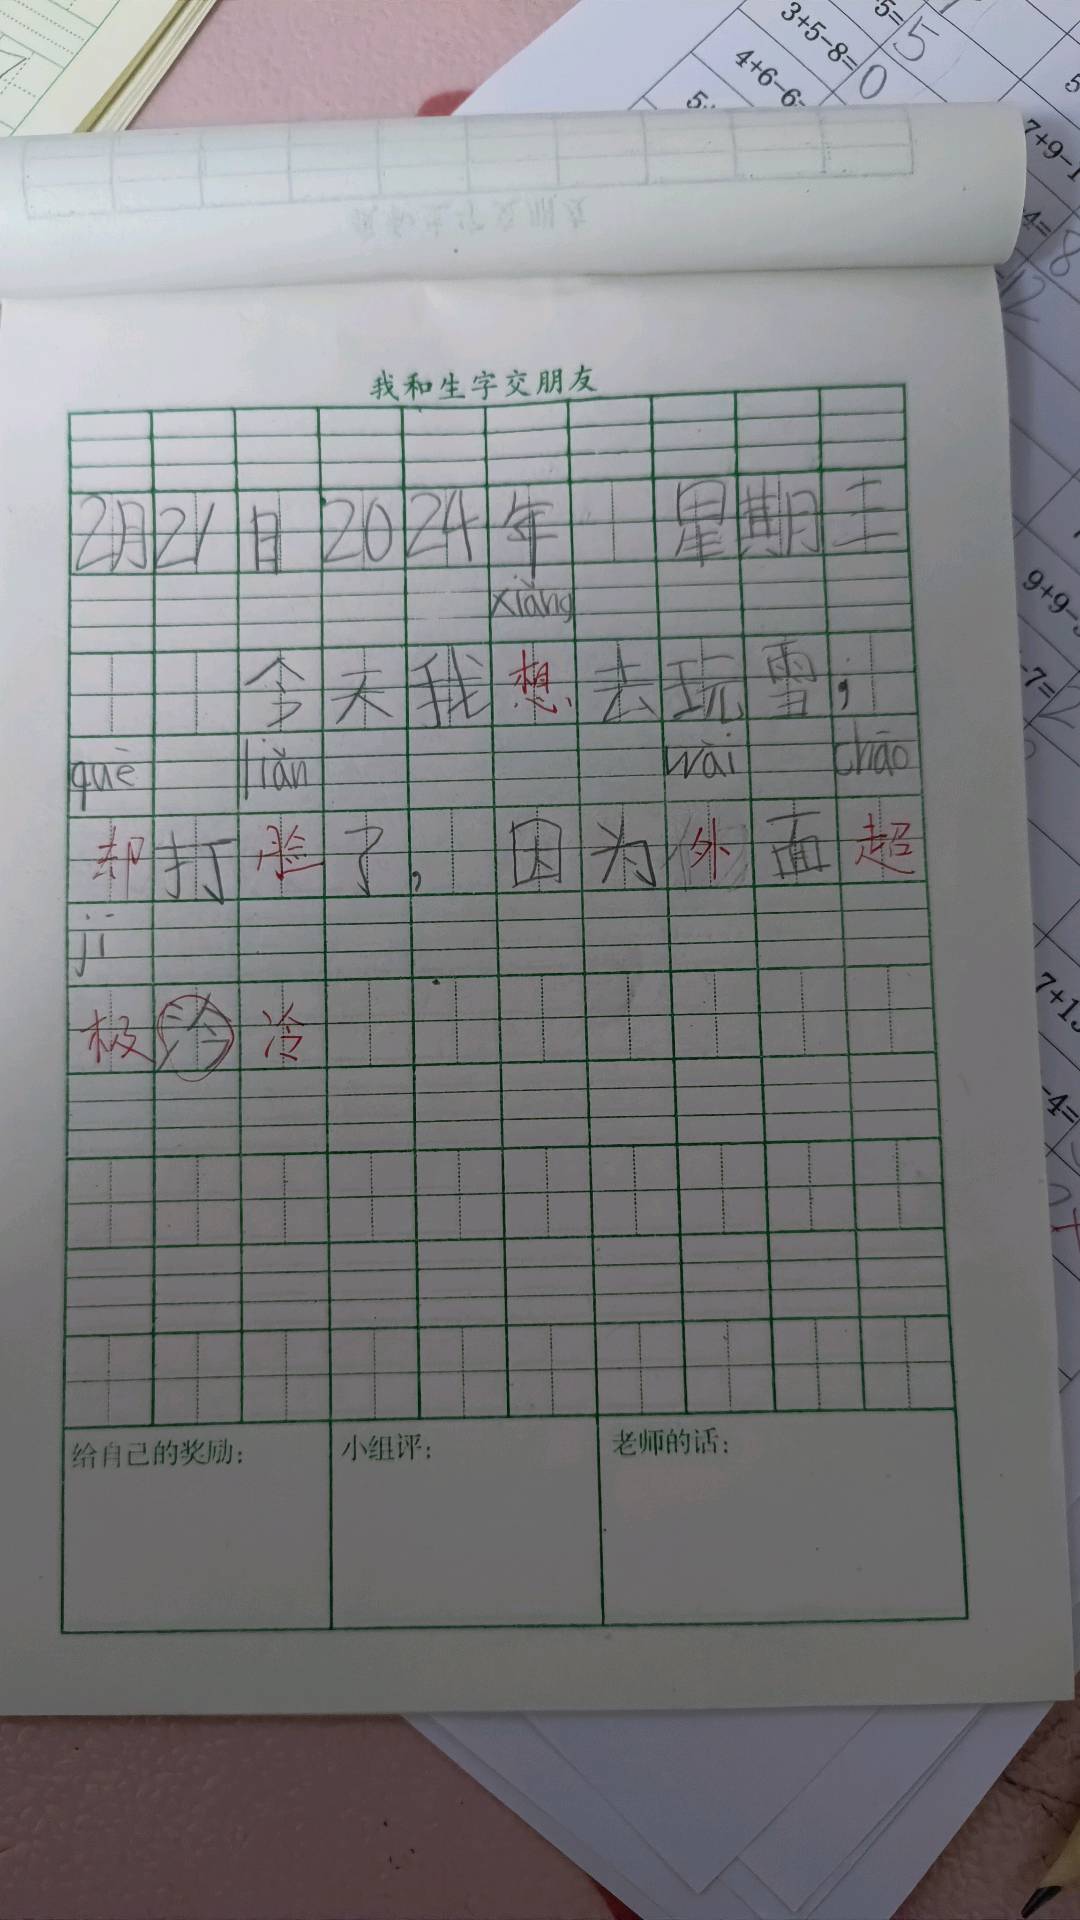 5=5
3+5-8=0
4+6-6=
7+9-1
4=8
12
9+9-
-7=2
7+1
-4=
我和生字交朋友
2月21日2024年 星期三
xiǎng
今天我想去玩雪,
què liǎn wài chāo
却打脸了,因为外面超
jí
极冷冷
给自己的奖励:
小组评:
老师的话: